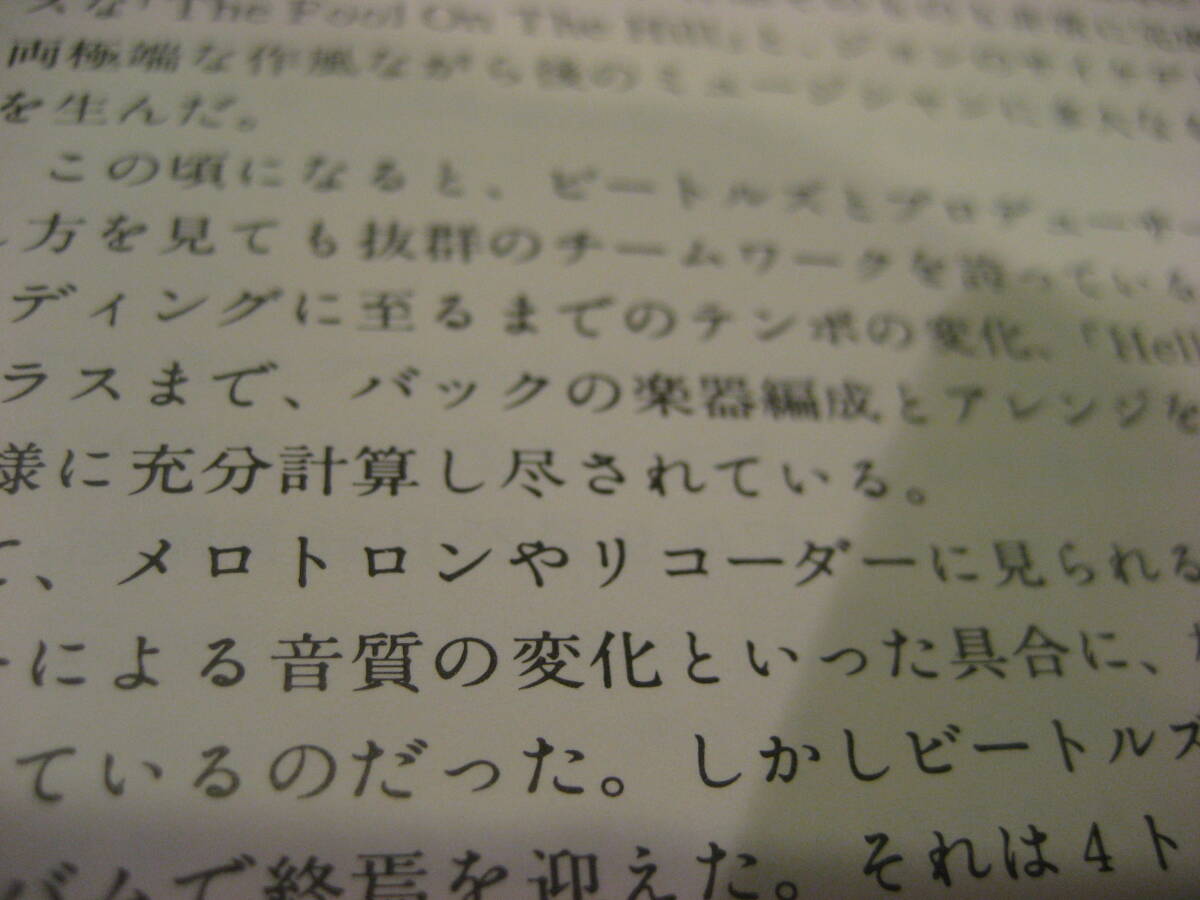 ズな「The Fool On The Hill」と、ジョンの
両極端な作風ながら後のミュージシャンに多大な
を生んだ。
この頃になると、ビートルズとプロデューサー
方を見ても抜群のチームワークを誇っている
ディングに至るまでのテンポの変化、「Hell
ラスまで、バックの楽器編成とアレンジを
様に充分計算し尽されている。
て、メロトロンやリコーダーに見られる
ーによる音質の変化といった具合に、
ているのだった。しかしビートルズ
バムで終焉を迎えた。それは4ト